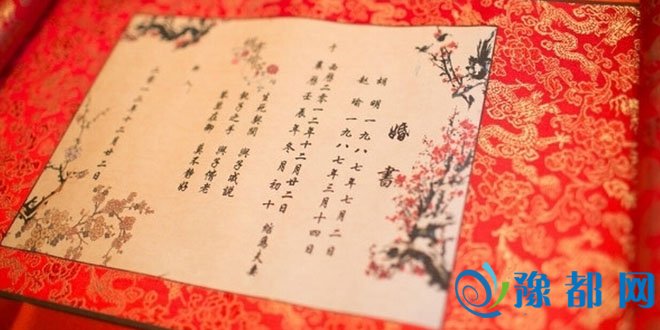 婚書
胡 明 一九八七年七月二日
赵 瑜 一九八七年三月十四日
于 西曆二零一二年十二月廿二日
農曆壬辰年冬月初十 結為夫妻
生死契闊 與子成說
執子之手 與子偕老
琴瑟在御 莫不静好
二零一二年十二月廿二日
豫都网